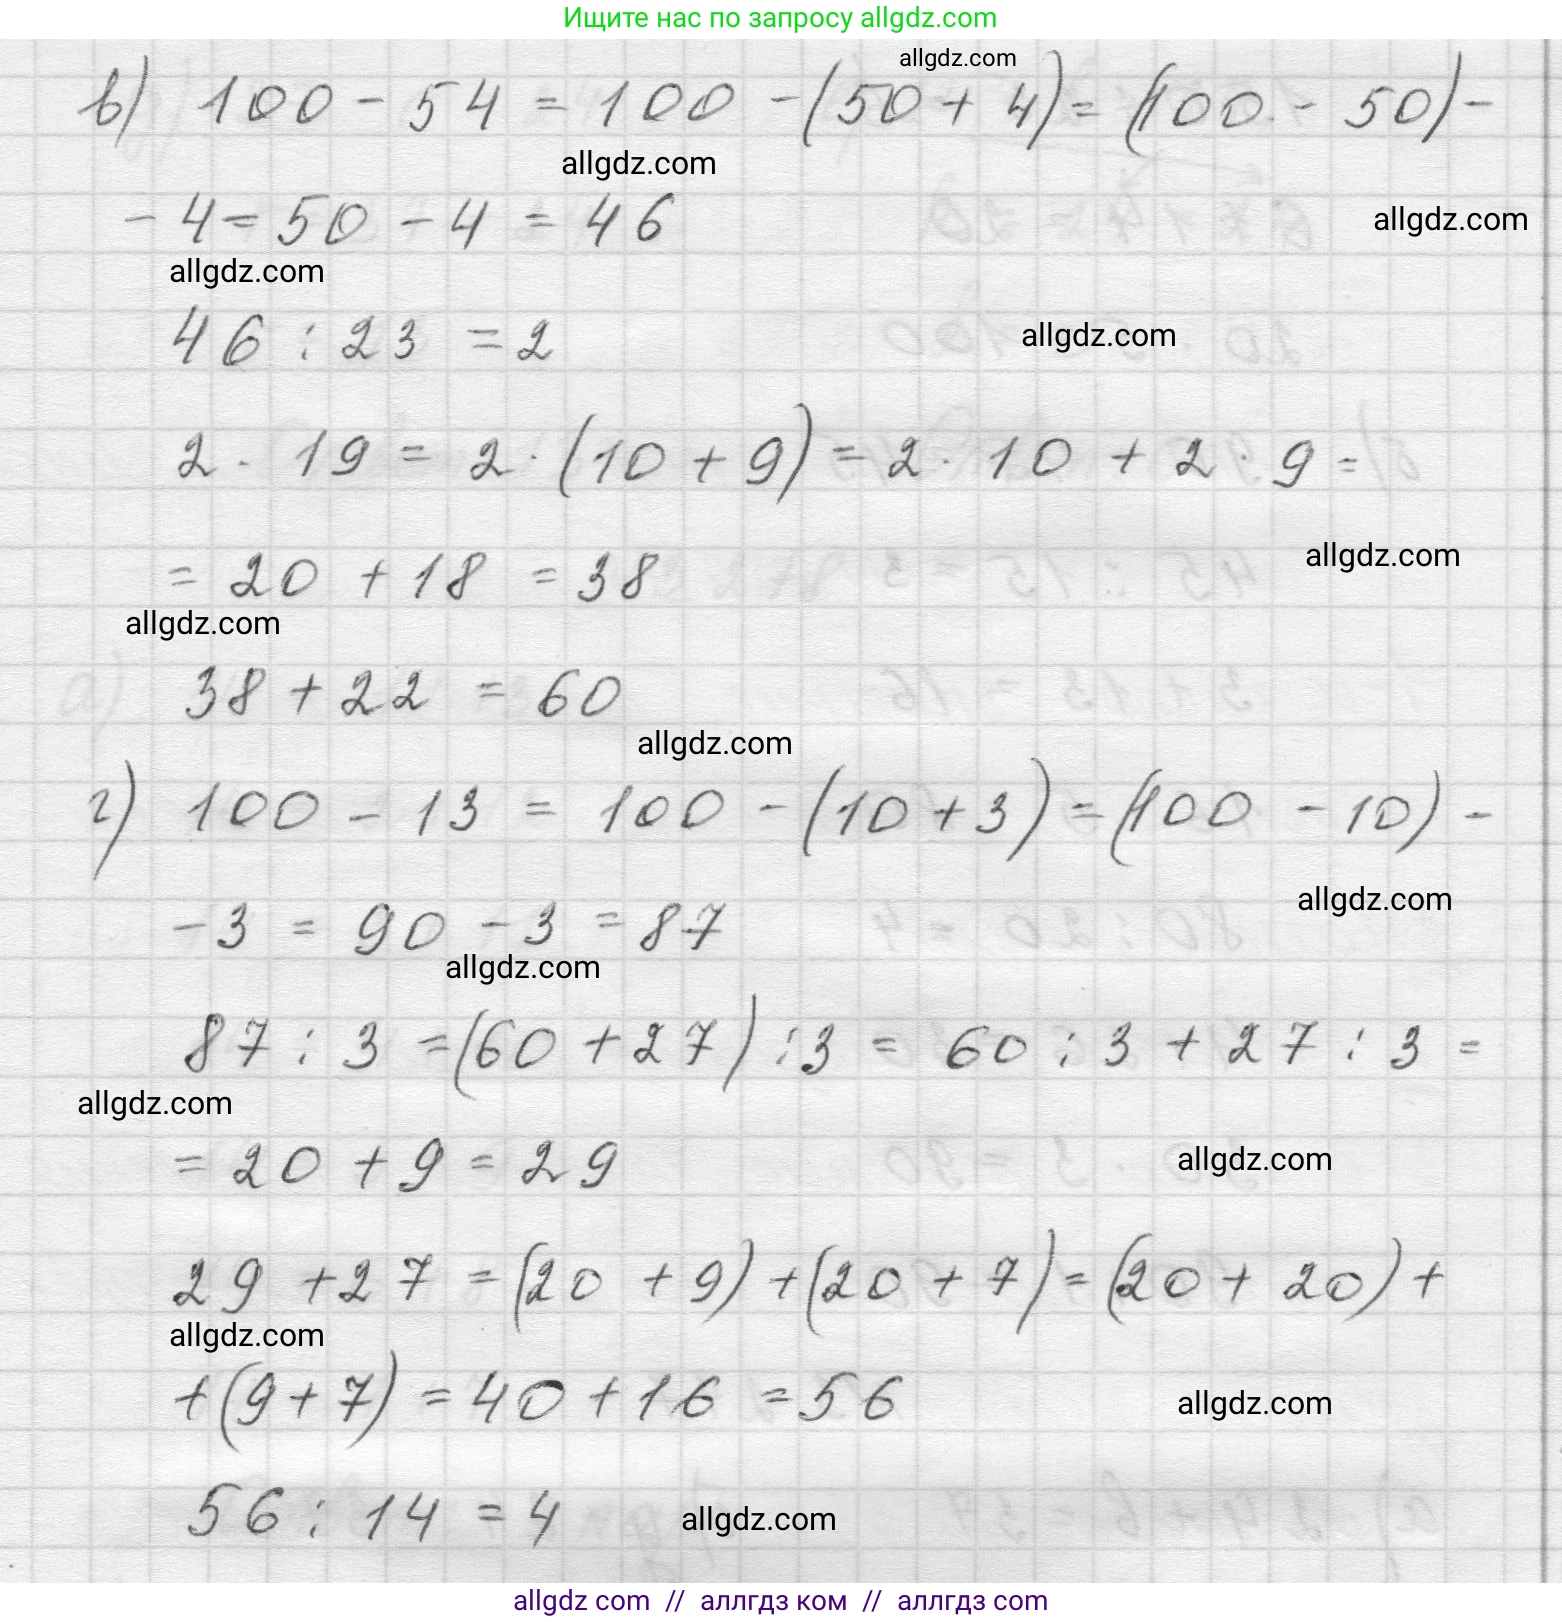 Ищите нас по запросу allgdz.com
allgdz.com
в) 100 - 54 = 100 - (50 + 4) = (100 - 50) -
allgdz.com
- 4 = 50 - 4 = 46
allgdz.com
allgdz.com
46 : 23 = 2
allgdz.com
2 · 19 = 2 · (10 + 9) = 2 · 10 + 2 · 9 =
allgdz.com
= 20 + 18 = 38
allgdz.com
38 + 22 = 60
allgdz.com
г) 100 - 13 = 100 - (10 + 3) = (100 - 10) -
allgdz.com
- 3 = 90 - 3 = 87
allgdz.com
87 : 3 = (60 + 27) : 3 = 60 : 3 + 27 : 3 =
allgdz.com
= 20 + 9 = 29
allgdz.com
29 + 27 = (20 + 9) + (20 + 7) = (20 + 20) +
allgdz.com
+ (9 + 7) = 40 + 16 = 56
allgdz.com
56 : 14 = 4
allgdz.com
allgdz com // аллгдз ком // аллгдз com